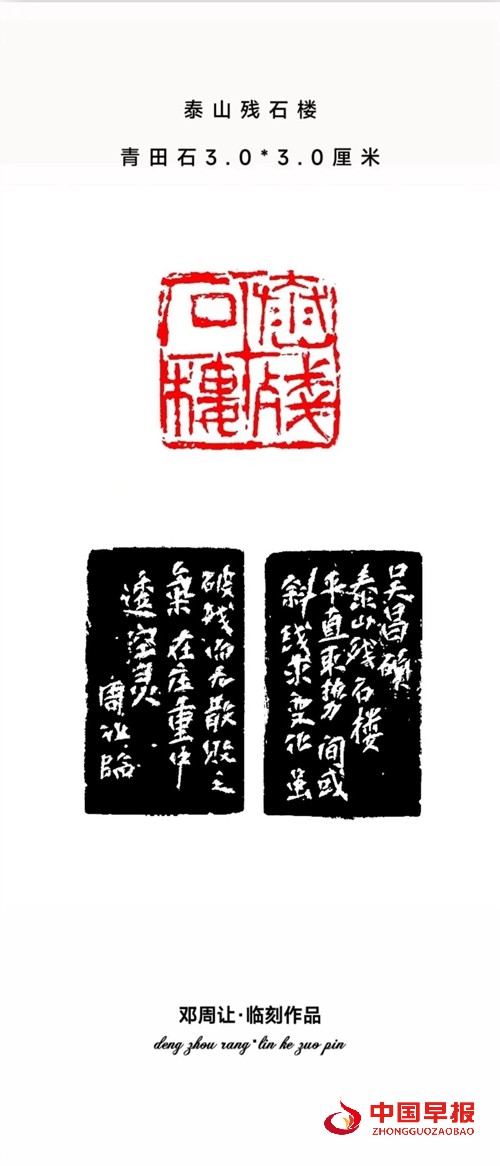 泰山残石楼
青田石3.0*3.0厘米
泰山
残
石
楼
吴昌硕
泰山残石楼
平直取势间或
斜线求变化虽
破残而无散败之
气在庄重中
透空灵
周让临
邓周让·临刻作品
deng zhou rang·lin ke zuo pin
中国早报
ZHONGGUOZAOBAO